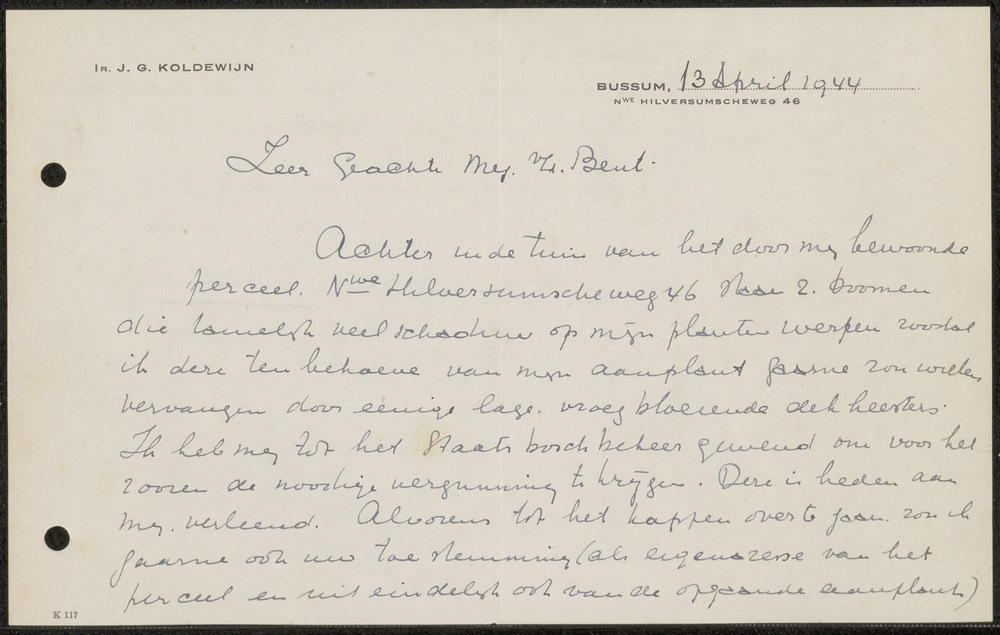 IR. J. G. KOLDEWIJN
BUSSUM, 13 April 1944
NWE HILVERSUMSCHEWEG 46
Zeer Geachte Mej. v.d. Bent.
Achter in de tuin van het door mij bewoonde
perceel. Nwe Hilversumscheweg 46 staan 2. boomen
die tamelijk veel schaduw op mijn planten werpen zoodat
ik deze ten behoeve van mijn aanplant gaarne zou willen
vervangen door eenige lage. vroeg bloeiende dekheesters.
Ik heb mij tot het Staatsboschbeheer gewend om voor het
rooien de noodige vergunning te krijgen. Deze is heden aan
mij. verleend. Alvorens tot het kappen over te gaan. zou ik
gaarne ook uw toestemming (als eigenaresse van het
perceel en uiteindelijk ook van de opgaande aanplant)
K 117